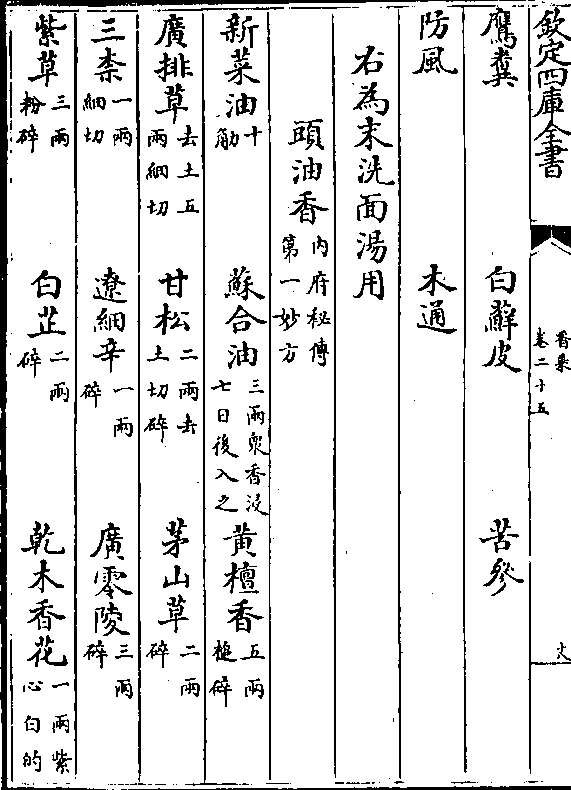 欽定四庫全書
香乘
卷二十五
鷹糞 白蘚皮 苦參
防風 木通
右為末洗面湯用
頭油香內府秘傳第一妙方
新菜油十觔 蘇合油三兩眾香浸七日後入之 黃檀香五兩槌碎
廣排草去土五兩細切 甘松二兩去土切碎 茅山草二兩碎
三柰一兩細切 遼細辛一兩碎 廣零陵三兩碎
紫草三兩粉碎 白芷二兩碎 乾木香花一兩紫心白的